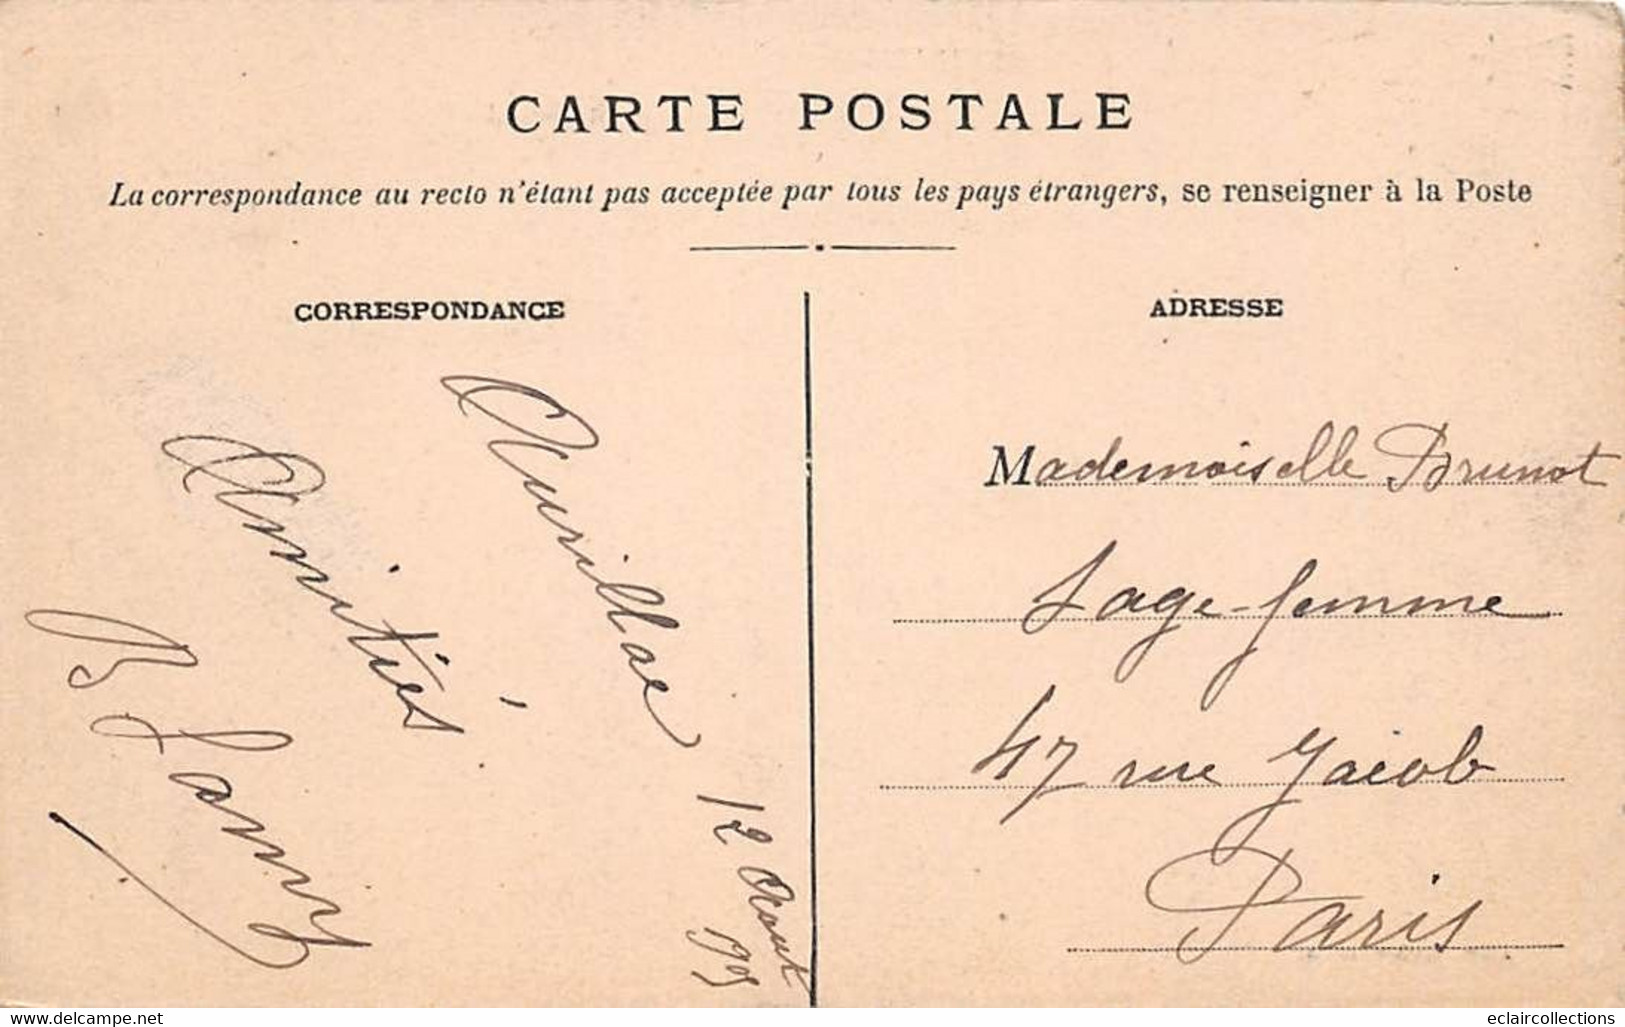 CARTE POSTALE
La correspondance au recto n'étant pas acceptée par tous les pays étrangers, se renseigner à la Poste
CORRESPONDANCE
Aurillac 12 Aout
1905
Amitiés
ADRESSE
Mademoiselle Brunot
Sage-femme
47 rue Jacob
Paris
www.delcampe.net
eclaircollections